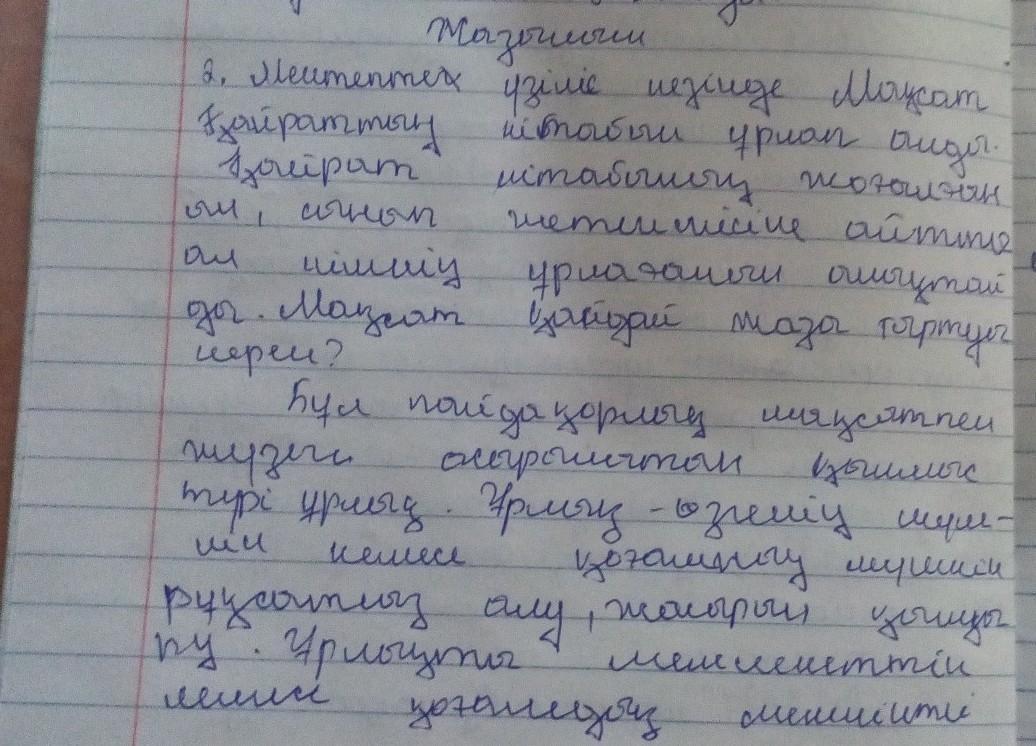 Жазылым
2. Мектептек үзіліс кезінде Мақсат
Қайраттың кітабын ұрлап алды.
Қайрат кітабының жоғалған
ын, сынып жетекшісіне айтты
ал кімнің ұрлағанын анықтай
ды. Мақсат қандай жаза тартуы
керек?
Бұл пайдақорлық мақсатпен
жүзеге асырылатын қылмыс
түрі ұрлық. Ұрлық - өзгенің мүл-
кін немесе қоғамның мүлкін
рұқсатсыз алу, жасырын қымқы
ру. Ұрлықты мемлекеттік
немесе қоғамдық меншікті